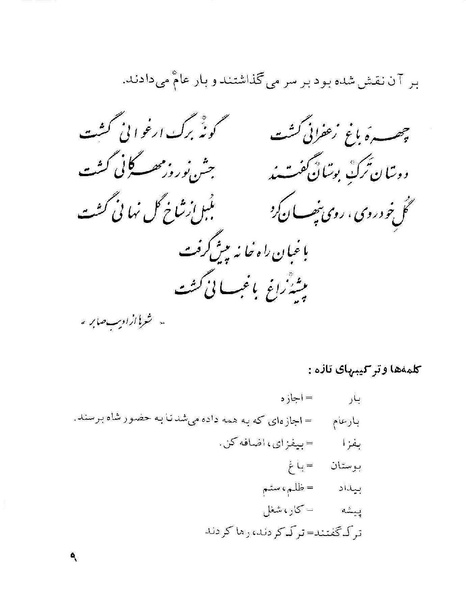 بر آن نقش شده بود بر سر می‌گذاشتند و بار عامْ می‌دادند.
چهرهٔ باغ زعفرانی گشت گونهٔ برگ ارغوانی گشت
دوستان تَرکِ بوستان گفتند جشن نوروز مهرگانی گشت
گُلِ خودروی، روی پنهان کرد بلبل از شاخ گل نهانی گشت
باغبان راه خانه پیش گرفت
پیشهٔ زاغ باغبانی گشت
- شعرها از ادیب صابر -
کلمه‌ها و ترکیبهای تازه :
بار = اجازه
بار عام = اجازه‌ای که به همه داده می‌شد تا به حضور شاه برسند.
بفزا = بیفزای، اضافه کن.
بوستان = باغ
بیداد = ظلم، ستم
پیشه - کار، شغل
ترک گفتند = ترک کردند، رها کردند
۹